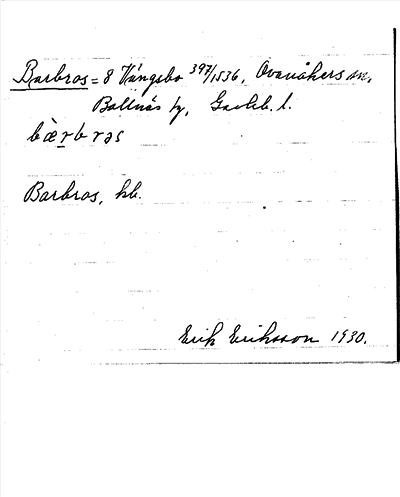 Barbros = 8 Vängsbo 397/1536, Ovanåkers sn,
Bollnäs tg, Gävleb. l.
bæ̀rbrəs
Barbros, kb.
Erik Eriksson 1930.